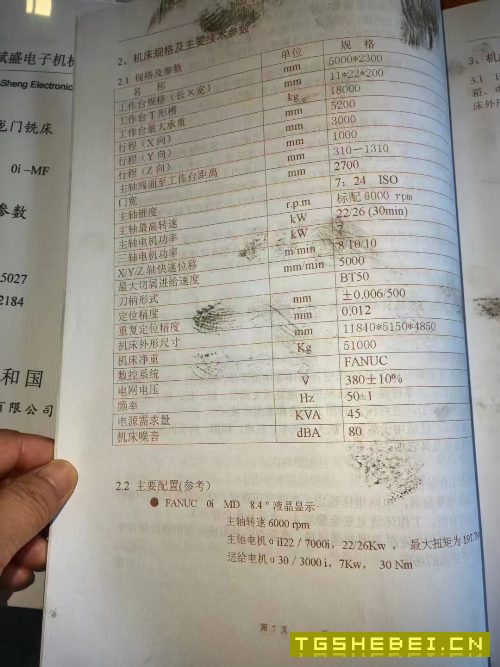 斌盛电子机械
Sheng Electronic
龙门铣床
0i-MF
参数
5027
2184
和国
有限公司
2、机床规格及主要技术参数
2.1 规格及参数
名 称 单位 规 格
工作台规格(长×宽) mm 5000*2300
工作台T形槽 mm 11*22*200
工作台最大承重 kg 18000
行程(X向) mm 5200
行程(Y向) mm 3000
行程(Z向) mm 1000
主轴端面至工作台距离 mm 310-1310
门宽 mm 2700
主轴锥度 7:24 ISO
主轴最高转速 r.p.m 标配6000 rpm
主轴电机功率 kW 22/26 (30min)
三轴电机功率 kW 7
X/Y/Z轴快速位移 m/min 8/10/10
最大切削进给速度 mm/min 5000
刀柄形式 BT50
定位精度 mm ±0.006/500
重复定位精度 mm 0.012
机床外形尺寸 mm 11840*5150*4850
机床净重 Kg 51000
数控系统 FANUC
电网电压 V 380±10%
频率 Hz 50±1
电源需求量 KVA 45
机床噪音 dBA 80
2.2 主要配置(参考)
● FANUC 0i MD 8.4"液晶显示
主轴转速6000 rpm
主轴电机αiI22/7000i, 22/26Kw, 最大扭矩为197.
送给电机α30/3000i, 7Kw, 30 Nm
第 7 页
3、机
3.1
箱、
床外
TGSHEBEI.CN